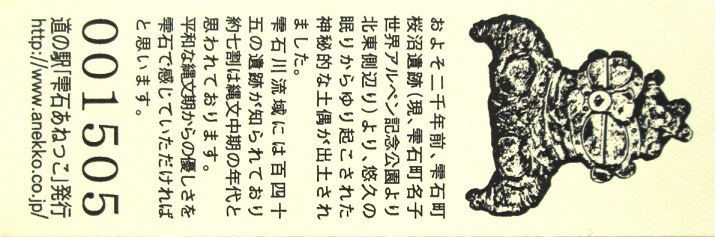 およそ二千年前、雫石町
桜沼遺跡（現、雫石町名子
世界アルペン記念公園より
北東側辺り）より、悠久の
眠りからゆり起こされた
神秘的な土偶が出土され
ました。
雫石川流域には百四十
五の遺跡が知られており
約七割は縄文中期の年代と
思われております。
平和な縄文期からの優しさを
雫石で感じていただければ
と思います。
001505
道の駅「雫石あねっこ」発行
http://www.anekko.co.jp/